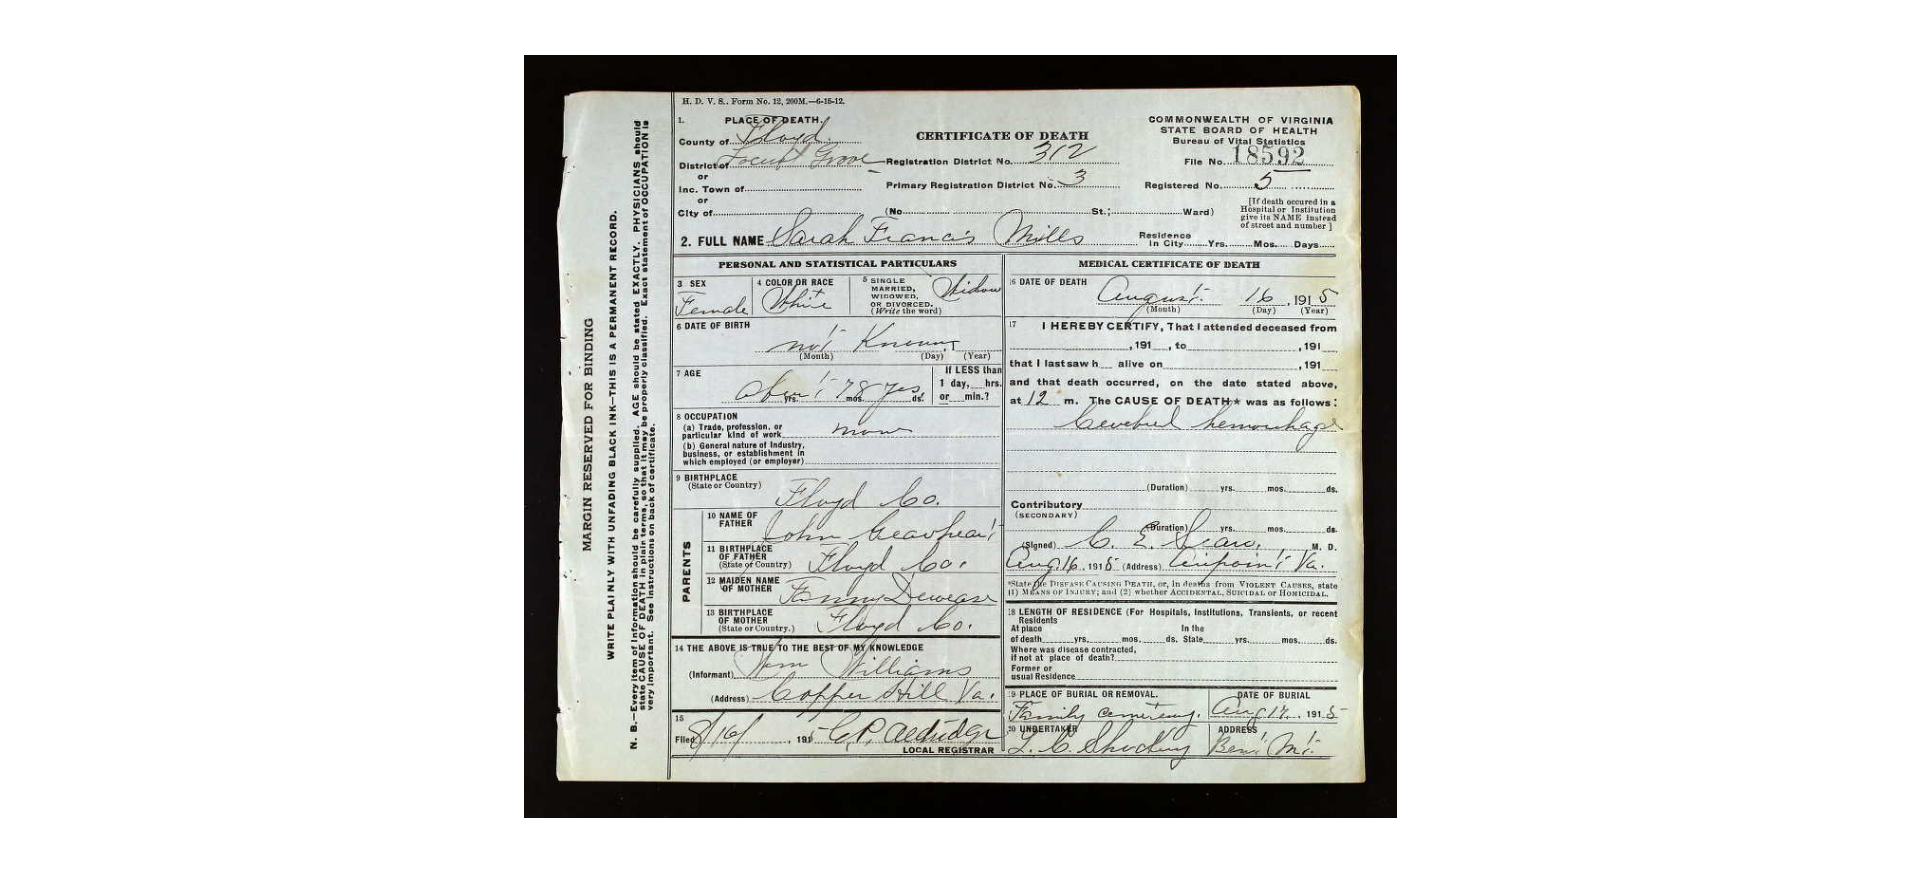 H. D. V. S.. Form No. 12, 200M.—6-15-12.
1. PLACE OF DEATH.
County of Floyd
District of Locust Grove
or
Inc. Town of
or
City of
CERTIFICATE OF DEATH
Registration District No. 312
Primary Registration District No. 3
(No. St.; Ward)
COMMONWEALTH OF VIRGINIA
STATE BOARD OF HEALTH
Bureau of Vital Statistics
File No. 18592
Registered No. 5
[If death occured in a
Hospital or Institution
give its NAME instead
of street and number ]
2. FULL NAME Sarah Francis Mills
Residence
In City Yrs. Mos. Days
PERSONAL AND STATISTICAL PARTICULARS
3 SEX
Female
4 COLOR OR RACE
White
5 SINGLE
MARRIED,
WIDOWED,
OR DIVORCED.
(Write the word)
Widow
6 DATE OF BIRTH
not Known
(Month) (Day) (Year)
7 AGE
about 78 yrs.
yrs. mos. ds.
If LESS than
1 day, hrs.
or min.?
8 OCCUPATION
(a) Trade, profession, or
particular kind of work none
(b) General nature of Industry,
business, or establishment in
which employed (or employer)
9 BIRTHPLACE
(State or Country)
Floyd Co.
PARENTS
10 NAME OF
FATHER
John
11 BIRTHPLACE
OF FATHER
(State or Country)
Floyd Co.
12 MAIDEN NAME
OF MOTHER
Fanny Dewease
13 BIRTHPLACE
OF MOTHER
(State or Country.)
Floyd Co.
14 THE ABOVE IS TRUE TO THE BEST OF MY KNOWLEDGE
(Informant) Wm Williams
(Address) Copper Hill Va.
15
Filed 8/16/, 191
LOCAL REGISTRAR
MEDICAL CERTIFICATE OF DEATH
16 DATE OF DEATH
August 16, 1915
(Month) (Day) (Year)
17 I HEREBY CERTIFY, That I attended deceased from
, 191 , to , 191
that I last saw h alive on , 191
and that death occurred, on the date stated above,
at 12 m. The CAUSE OF DEATH* was as follows:
Cerebral hemorrhage
(Duration) yrs. mos. ds.
Contributory
(SECONDARY)
(Duration) yrs. mos. ds.
(Signed) C. E. M. D.
Aug. 16, 1915 (Address) Airpoint Va.
*State the DISEASE CAUSING DEATH, or, in deaths from VIOLENT CAUSES, state
(1) MEANS OF INJURY; and (2) whether ACCIDENTAL, SUICIDAL OR HOMICIDAL.
18 LENGTH OF RESIDENCE (For Hospitals, Institutions, Transients, or recent
Residents
At place In the
of death yrs. mos. ds. State yrs. mos. ds.
Where was disease contracted,
if not at place of death?
Former or
usual Residence
19 PLACE OF BURIAL OR REMOVAL.
Family cemetery.
DATE OF BURIAL
Aug 17. 1915
20 UNDERTAKER
ADDRESS
Bent Mt.
MARGIN RESERVED FOR BINDING
WRITE PLAINLY WITH UNFADING BLACK INK—THIS IS A PERMANENT RECORD.
N. B.—Every item of Information should be carefully supplied. AGE should be stated EXACTLY. PHYSICIANS should
state CAUSE OF DEATH in plain terms, so that it may be properly classified. Exact statement of OCCUPATION is
very important. See instructions on back of certificate.